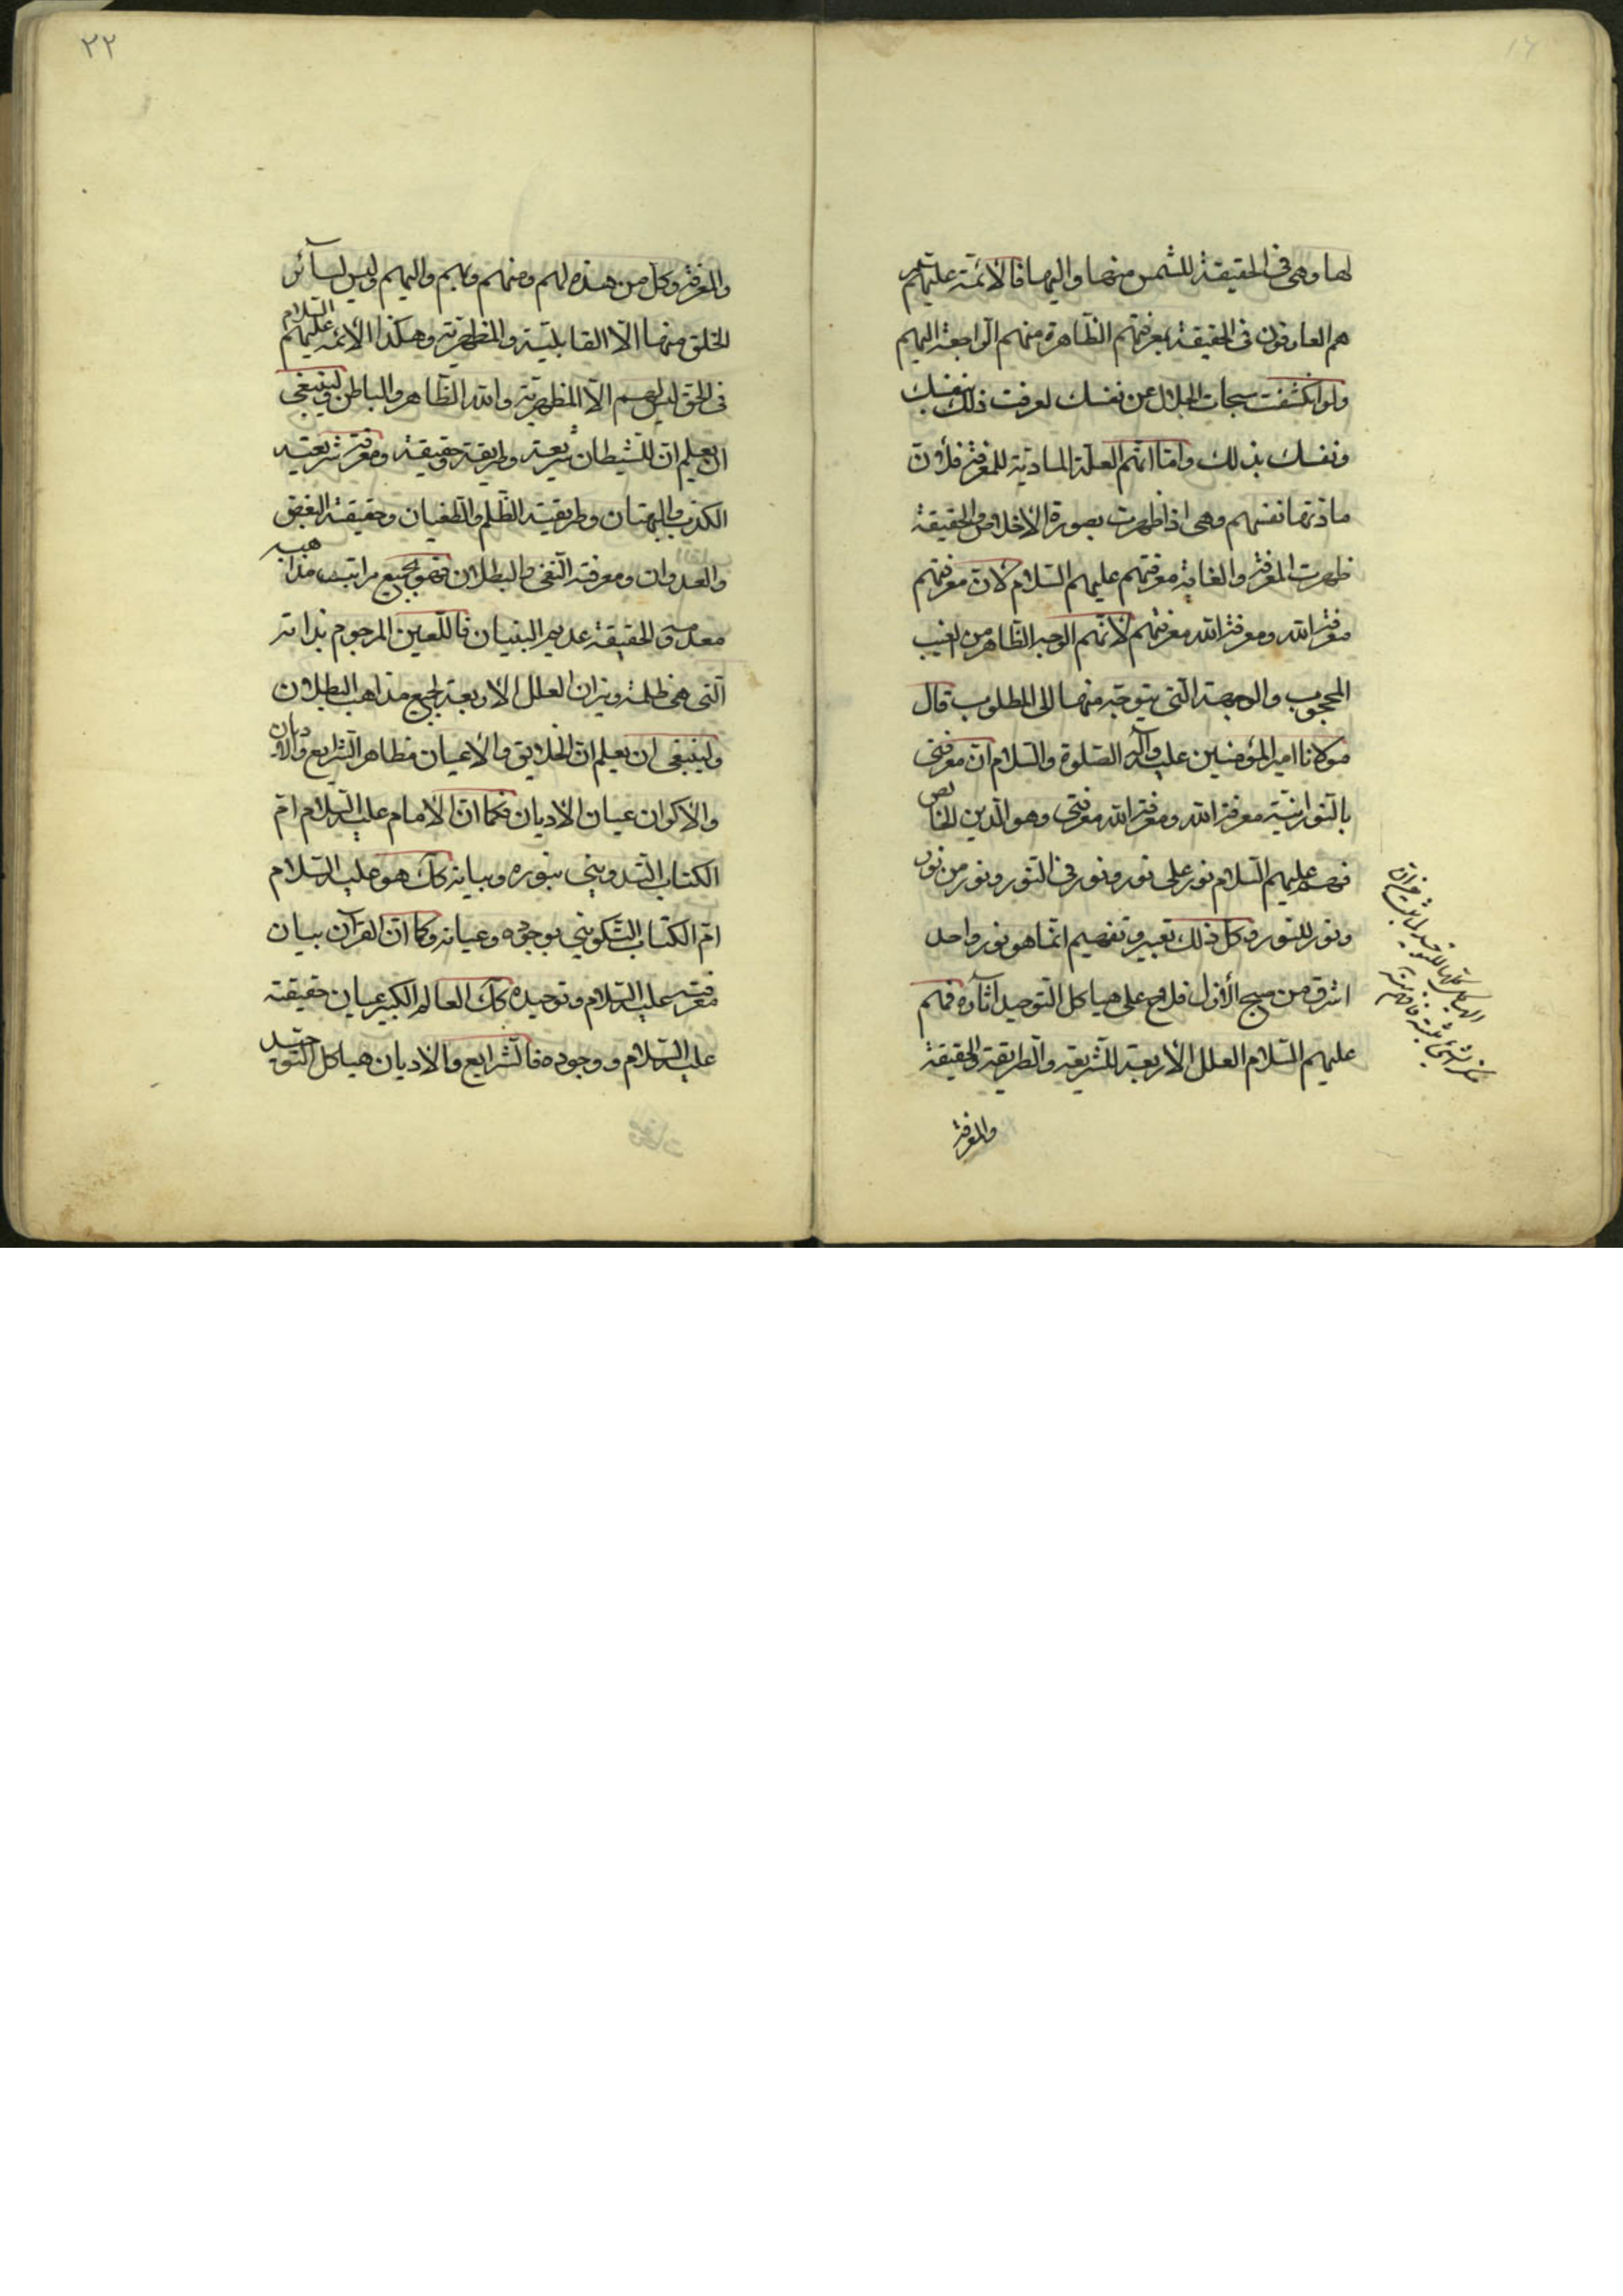 لها وهى فى الحقيقة للشمس منها واليها فالائمة عليهم
هم العارفون فى الحقيقة بمعرفتهم الظاهرة منهم الراجعة اليهم
ولو انكشفت سبحات الجلال عن نفسك لعرفت ذلك بنفسك
ونفسك بذلك واما انهم العلة المادية للمعرفة فلان
مادتها نفسهم وهى اذا ظهرت بصورة الاخلاص والحقيقة
ظهرت المعرفة والغاية معرفتهم عليهم السلام لان معرفتهم
معرفة الله ومعرفة الله معرفتهم لانهم الوجه الظاهر من الغيب
المحجوب والوجهة التى يتوجه منها الى المطلوب قال
مولانا امير المؤمنين عليه وآله الصلوة والسلام ان معرفتى
بالنورانية معرفة الله ومعرفة الله معرفتى وهو الدين الخالص
فهم عليهم السلام نور على نور ونور فى النور ونور من نور
ونور للنور وكل ذلك تعبير وتفهيم انما هو نور واحد
اشرق من صبح الأزل فلاح على هياكل التوحيد آثاره فهم
عليهم السلام العلل الأربعة للشريعة والطريقة والحقيقة
والمعرفة
٢٢
والمعرفة وكل من هذه لهم ومنهم وبهم واليهم وليس لسائر
الخلق منها الا القابلية والمظهرية وهكذا الائمة عليهم السلام
فى الحق ليس لهم الا المظهرية والله الظاهر والباطن ولينبغى
ان يعلم ان للشيطان شريعة وطريقة وحقيقة ومعرفة شريعته
الكذب والبهتان وطريقته الظلم والطغيان وحقيقته البغض
والعدوان ومعرفته النفى والبطلان فهو بجميع مراتبه مذاهبه
معدم الحقيقة عديم البنيان فاللعين المرجوم بذاته
التى هى ظلمة ونيران العلل الاربعة لجميع مذاهب البطلان
ولينبغى ان يعلم ان الخلايق والاعيان مظاهر الشرايع والاديان
والاكوان عيان الاديان فكما ان الامام عليه السلام ام
الكتاب التدوينى بنوره وبيانه كك هو عليه السلام
ام الكتاب التكوينى بوجوده وعيانه وكما ان القرآن بيان
معرفته عليه السلام وتوحيده كك العالم الكبير عيان حقيقته
عليه السلام ووجوده فالشرايع والاديان هياكل التوحيد